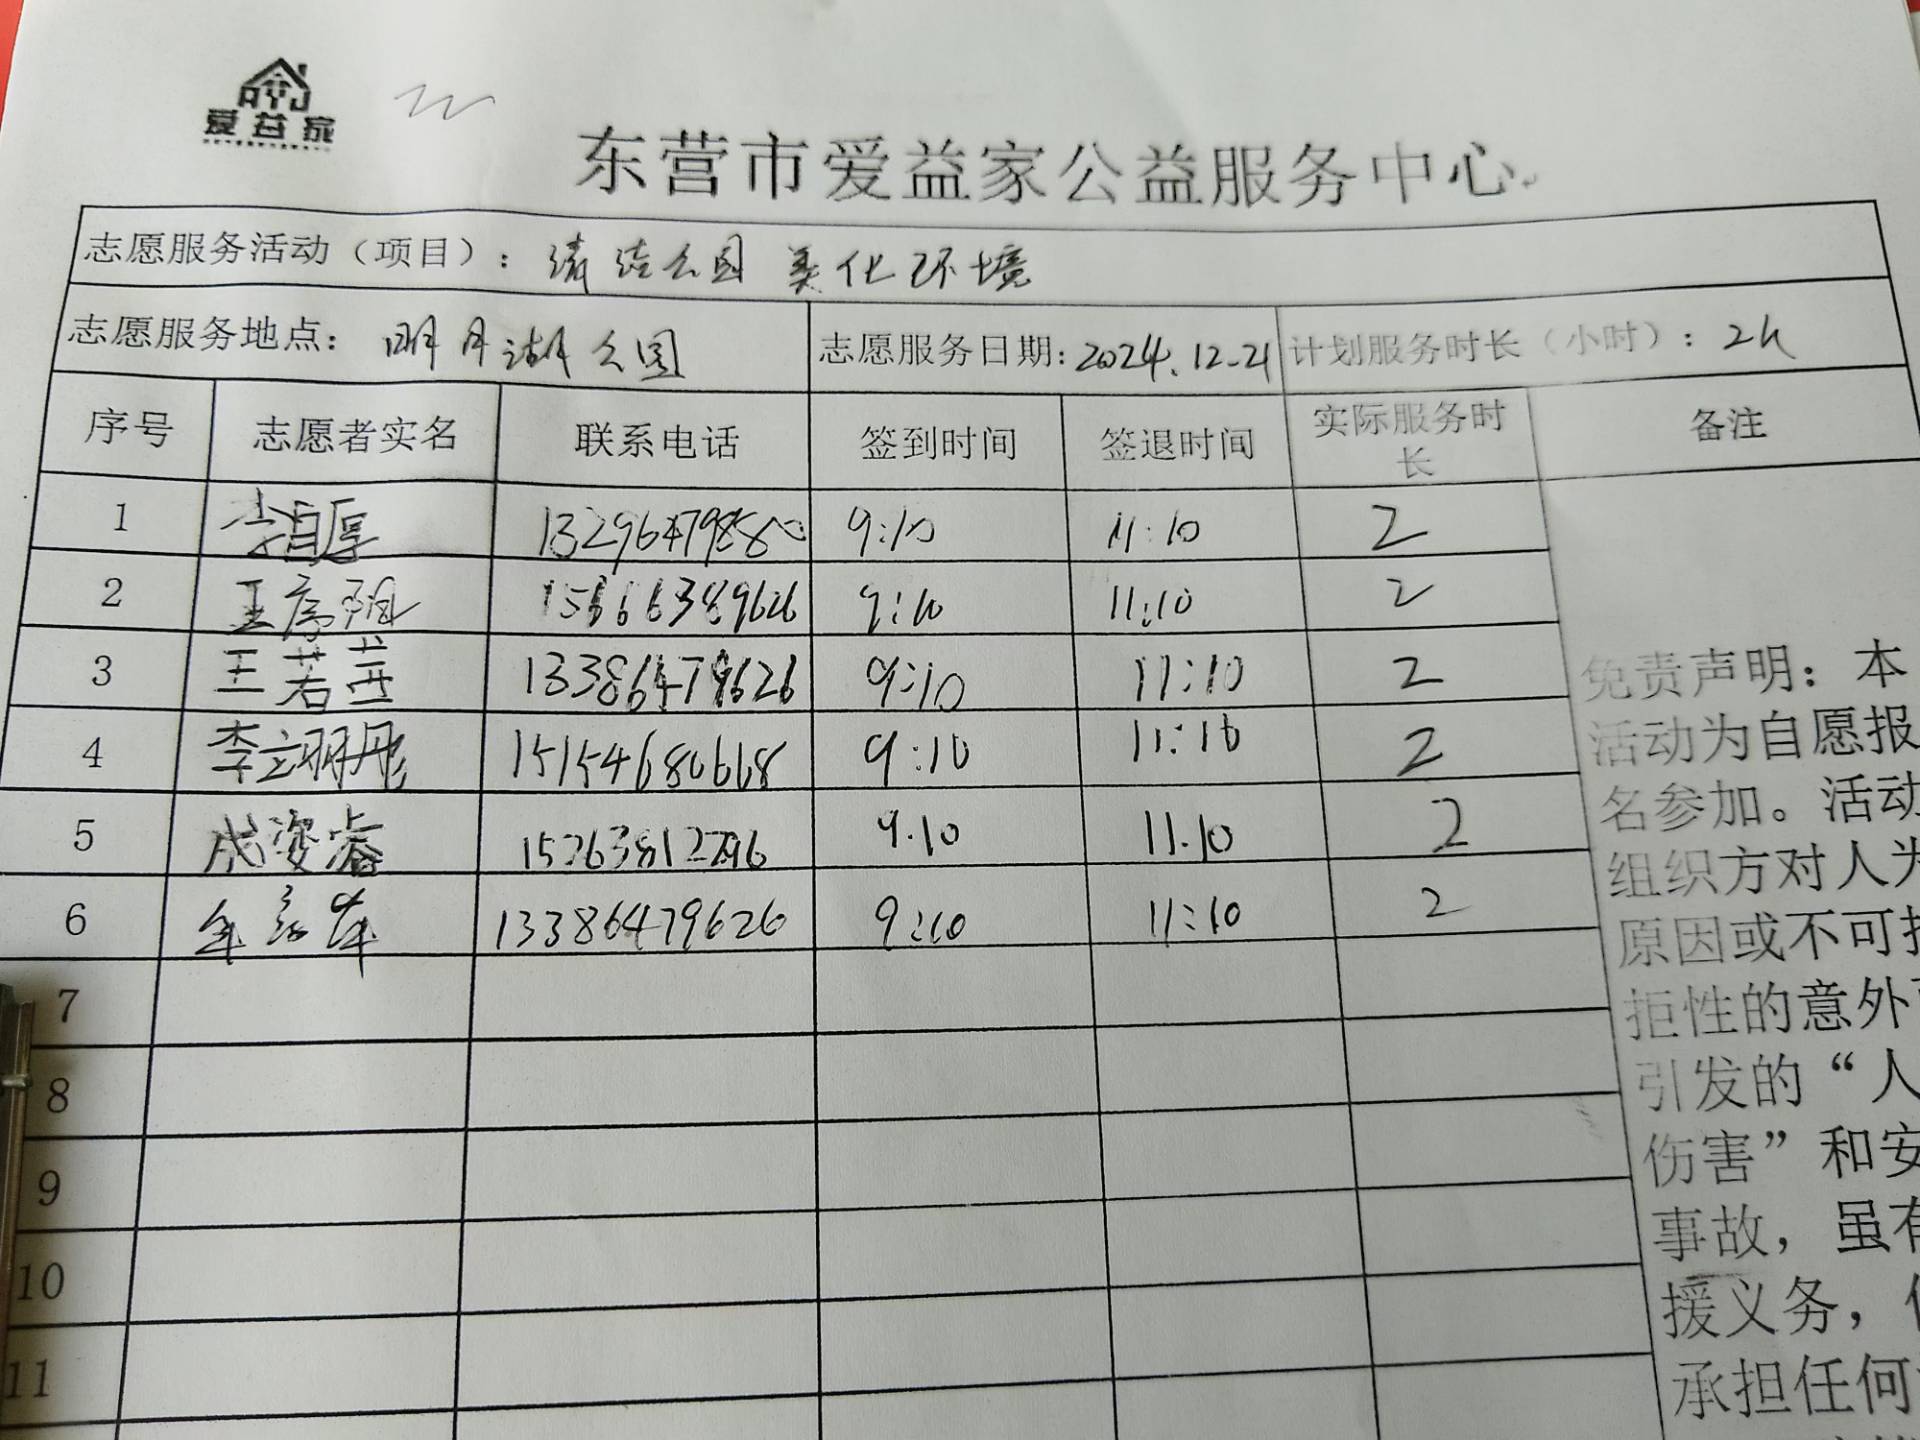 AYJ
爱益家
东营市爱益家公益服务中心
志愿服务活动（项目）：清洁公园 美化环境
志愿服务地点：明月湖公园 志愿服务日期：2024.12.21 计划服务时长（小时）：2h
序号 志愿者实名 联系电话 签到时间 签退时间 实际服务时长 备注
1 13296479880 9:10 11:10 2
2 15666389626 9:10 11:10 2
3 王若茜 13386479626 9:10 11:10 2
4 李立明彤 15154680668 9:10 11:10 2
5 成姿睿 9.10 11.10 2
6 13386479626 9:10 11:10 2
7
8
9
10
11
免责声明：本
活动为自愿报
名参加。活动
组织方对人为
原因或不可抗
拒性的意外
引发的“人
伤害”和安
事故，虽有
援义务，但
承担任何